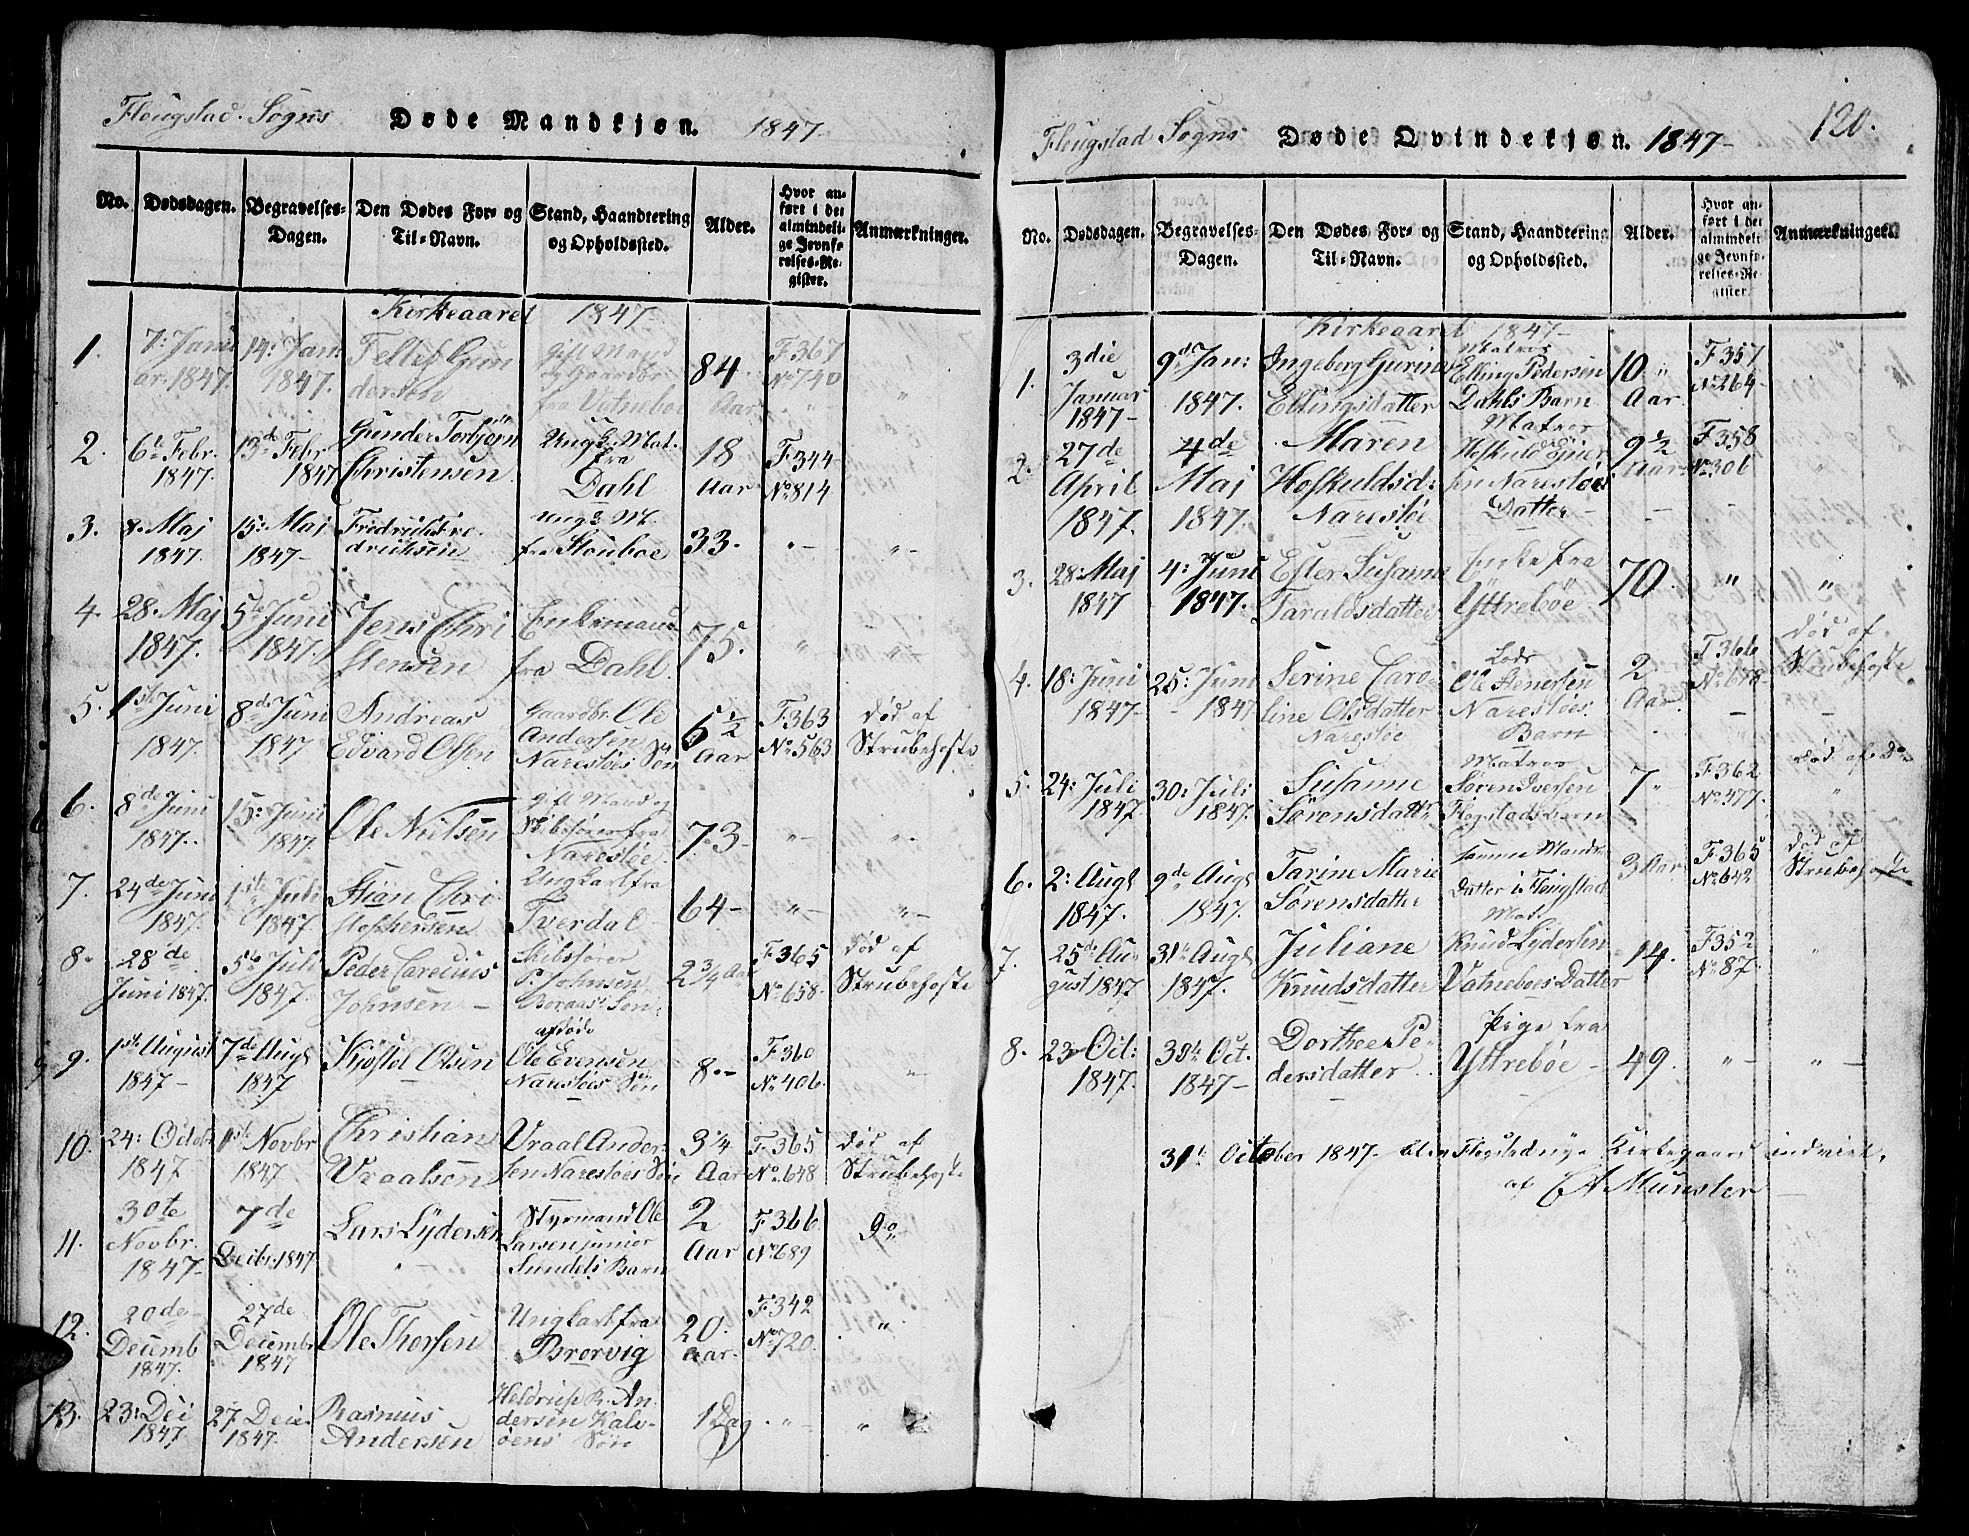 Flougstad Sogns Døde Mandkjøn. 1847.
No. Dødsdagen. Begravelses-Dagen. Den Dødes For- og Til-Navn. Stand, Haandtering og Opholdssted. Alder. Hvor anført i det almindelige Jevnførelses-Register. Anmærkninger.
Kirkegaard 1847
1. 7: Januar. 1847. 14: Jan: 1847. Tellef Gundersen Gift Mand og Gaardbr. fra Vatneboe 84 Aar F 367 No 740 "
2. 6te Febr. 1847. 13de Febr 1847 Gunder Torbjørn Christensen Ungk. Mat. fra Dahl 18 Aar F. 344 No. 814
3. 8. Maj 1847. 15: Maj 1847 - Fredrich Fredrichsen ung M. fra Stouboe 33. " - " -
4. 28. Maj 1847. 5te Juni 1847. Jens Christensen Enkemand fra Dahl. 75. " "
5. 1ste Juni 1847. 8de Juni 1847 Andreas Edvard Olsen Gaardbr. Ole Andersen Narestøes Søn 6 1/2 Aar F. 363 No. 563 død af Strubehoste
6. 8de Juni 1847. 15: Juni 1847. Ole Nielsen Gift Mand og Skibsfører fra Narestøe. 73 - " - " -
7. 24de Juni 1847. 1ste Juli 1847. Stian Christophersen Ungkarl fra Tverdal - 64 - " - " -
8. 28de Juni 1847. 5te Juli 1847. Peder Carelius Johnsen - Skibsfører P. Johnsen Boraas Søn. 2 3/4 Aar F. 365 No. 658. død af Strubehoste
9. 1ste August 1847 - 7de Augs 1847 Kjøstol Olsen afdøde Ole Evensen Narestøes Søn 8. - F. 360 No. 406. " -
10. 24: Octob. 1847 1ste Novbr 1847 Christian Vraalsen Vraal Andersen Narestøes Søn 3 1/4 Aar F. 365 No. 648 død af Strubehoste
11. 30te Novbr. 1847 - 7de Decbr. 1847 Lars Lydersen Styrmand Ole Larsen junior Sundets Barn 2 Aar F. 366. No. 689 do
12. 20de Decemb 1847. 27de Decembr 1847 Ole Thorsen Ungkarl fra Brørvig 20. Aar. F. 342 No. 720. "
13. 23: Dec 1847 27 Dec. 1847. Rasmus Andersen R. Andersen Kalvøens Søn 1 Dag. " - "
Flougstad Sogns Døde Qvindekjøn. 1847 - 120.
No. Dødsdagen. Begravelses-Dagen. Den Dødes For- og Til-Navn. Stand, Haandtering og Opholdssted. Alder. Hvor anført i det almindelige Jevnførelses-Register. Anmærkninger.
Kirkegaard 1847 -
1. 3die Januar 1847 - 9de Jan: 1847. Ingeborg Gurine Ellingsdatter Matros Elling Pedersen Dahls Barn 10 " Aar. F 357 No. 264 -
2. 27de April 1847. 4de Maj 1847. Maren Hofkuldsd: Narestøe Matros Hofkuld Narestøes Datter - 9 1/2 Aar F. 358 No. 306 "
3. 28: Maj 1847 4: Juni 1847. Ester Susanne Taraldsdatter Enke fra Yttrebøe 70. " "
4. 18: Juni 1847 - 25: Juni 1847 Serine Caroline Olsdatter Narestøe Lods Ole Stensen Narestøes Barn 2 Aar. F. 366 No. 678 - død af Strubehoste
5. 24: Juli 1847 30: Juli 1847. Susanne Sørensdatter Matros Søren Iversen Flogstads barn 7 " - F. 362 No. 477. død af do
6. 2: Augs 1847. 9de Augs 1847. Tarine Marie Sørensdatter samme Mands Datter i Flougstad 3 Aar F. 365 No. 642 død af Strubehoste
7. 25de August 1847 31te Augs 1847. Juliane Knudsdatter Mat. Knud Lydersen Vatneboes Datter 14. F. 352 No. 87. "
8. 23 Oct: 1847. 30te Oct. 1847 - Dorthee Pedersdatter Pige fra Yttrebøe - 49. " - " -
31te October 1847. blev Flogstad nye Kirkegaard indviet,
af E A Münster